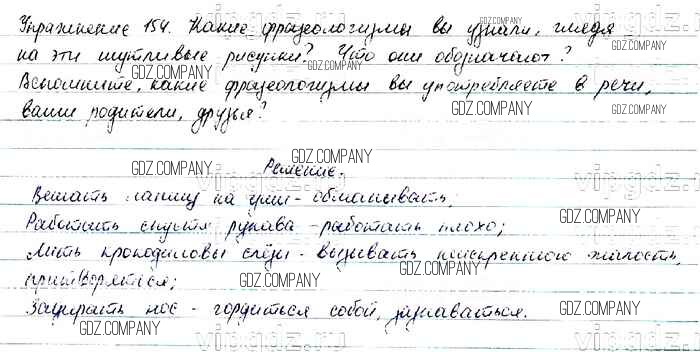 Упражнение 154. Какие фразеологизмы вы узнали, глядя
на эти шутливые рисунки? Что они обозначают?
Вспомните, какие фразеологизмы вы употребляете в речи,
ваши родители, друзья?
Решение.
Вешать лапшу на уши - обманывать;
Работать спустя рукава - работать плохо;
Лить крокодиловы слёзы - вызывать неискреннюю жалость,
притворяться;
Задирать нос - гордиться собой, зазнаваться.
GDZ.COMPANY
vipgdz.ru